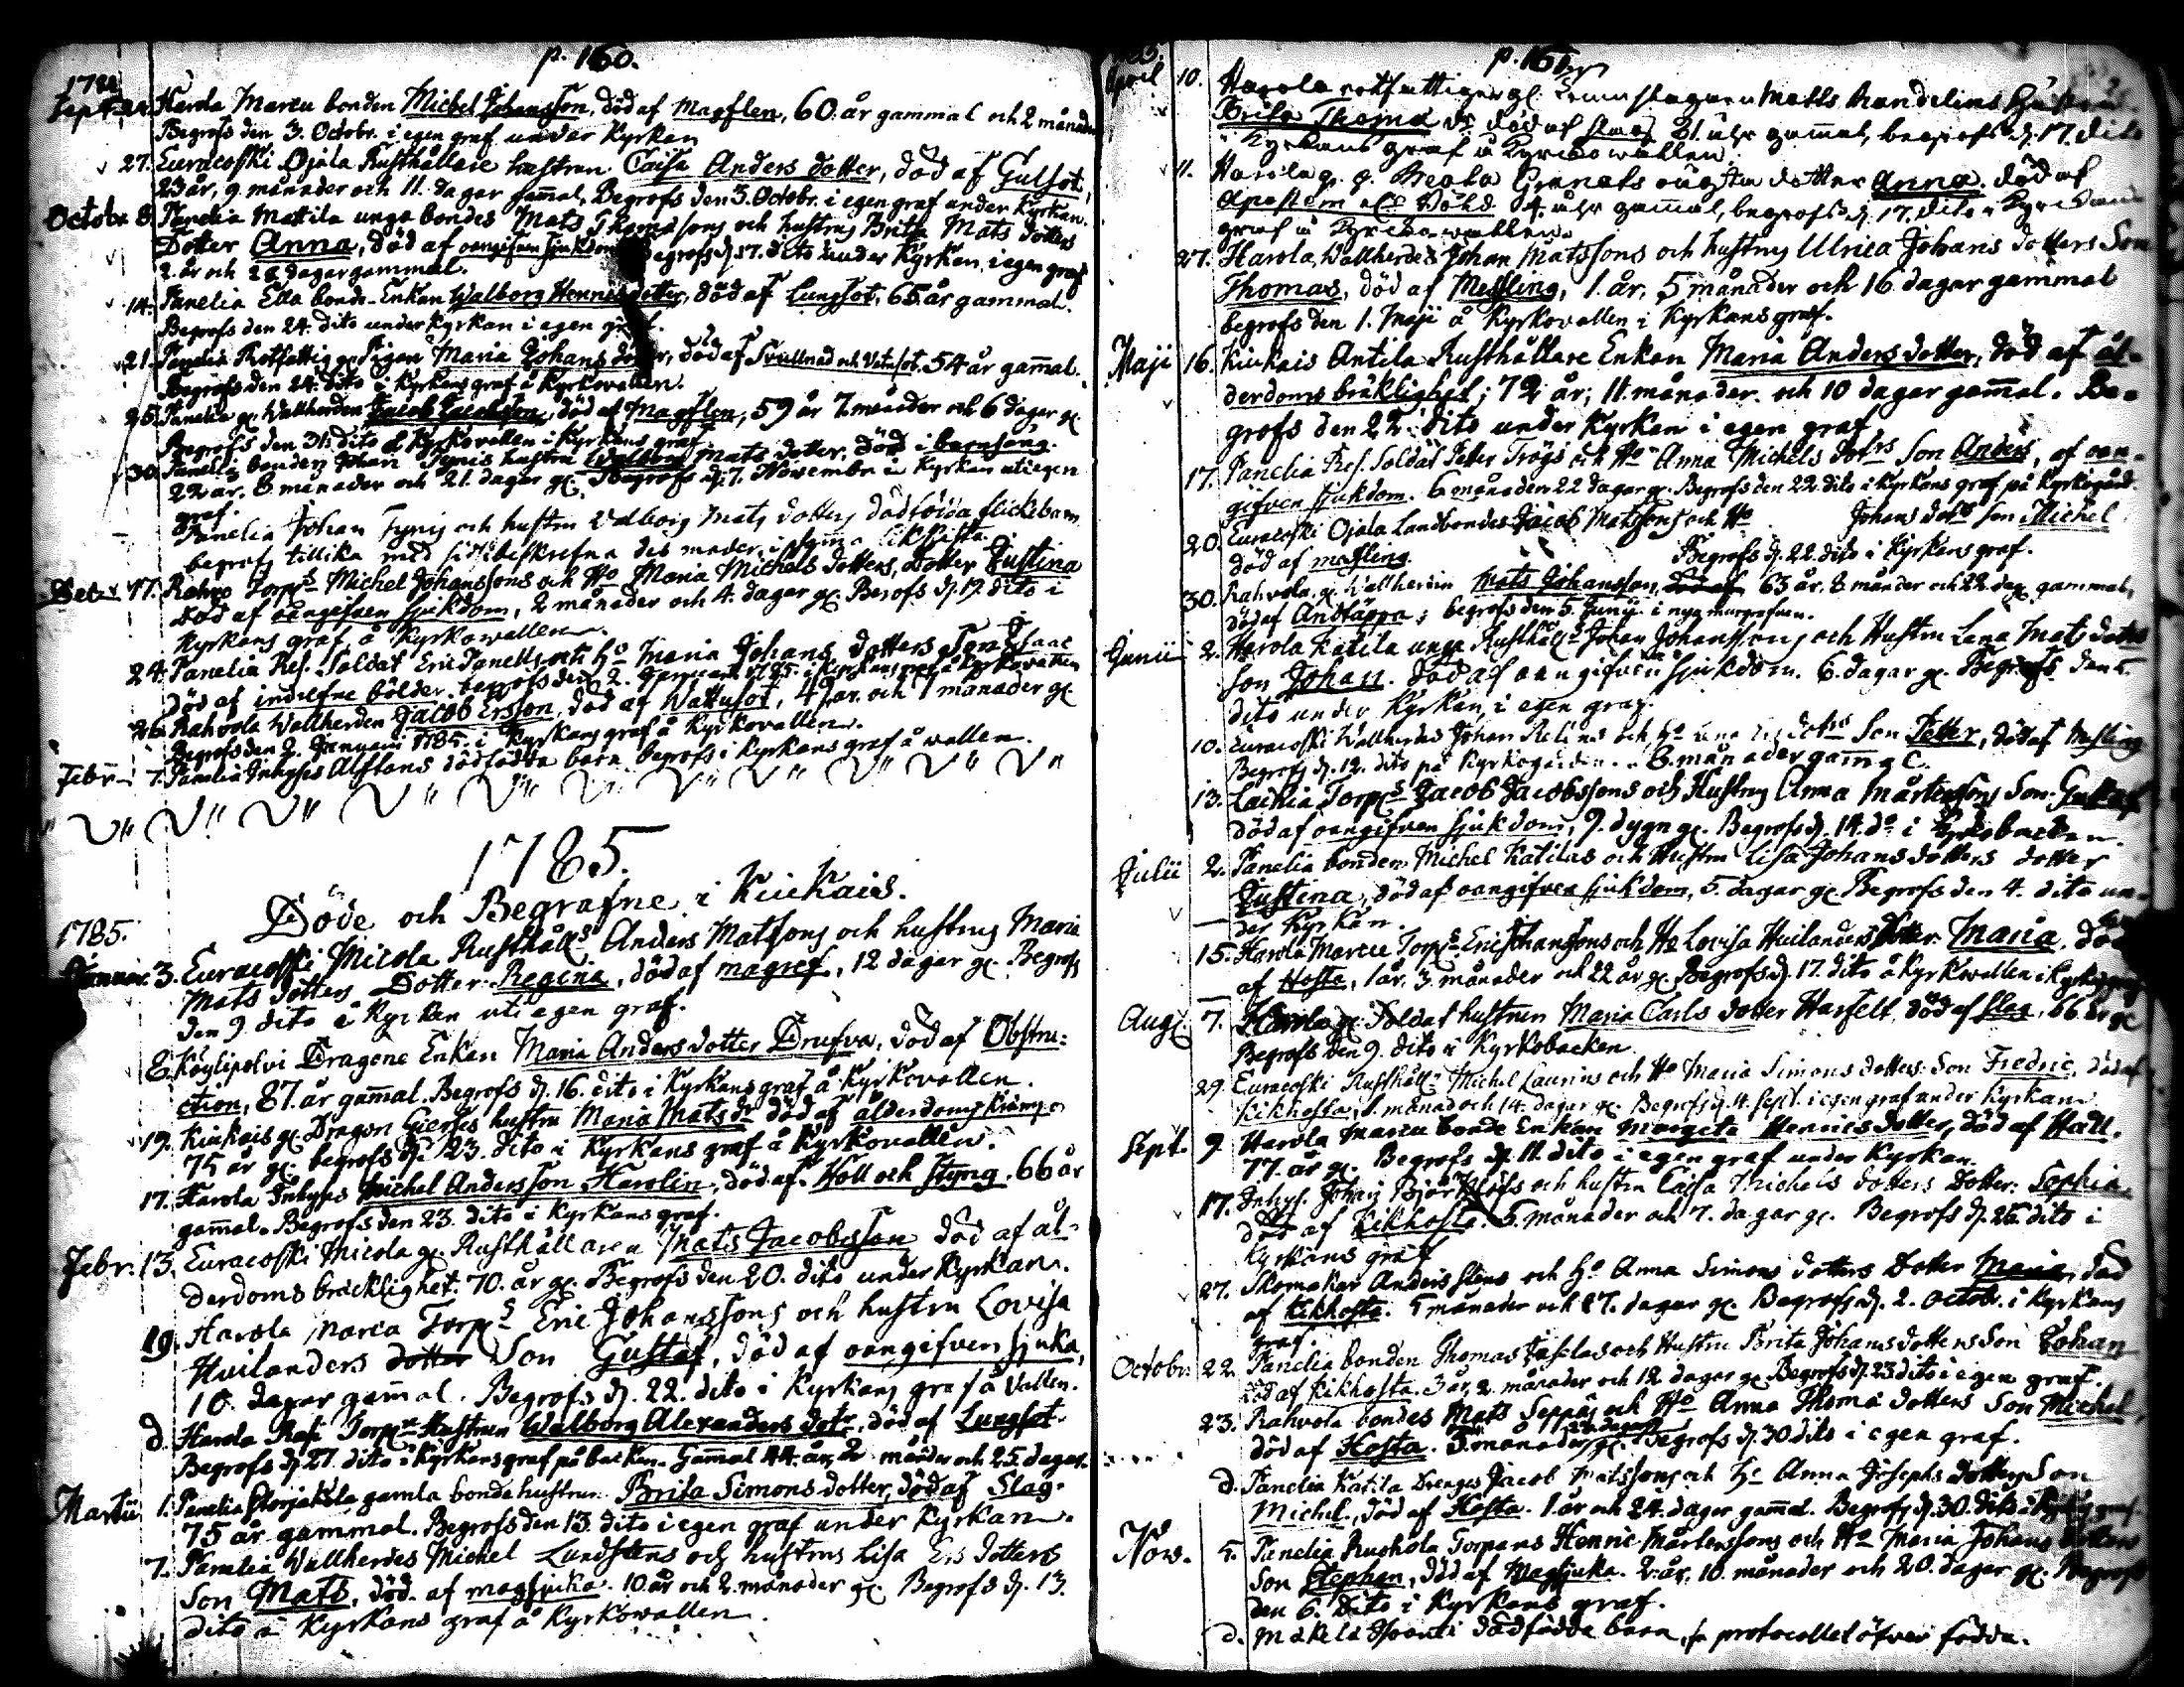 p. 160.
1784
Sept. Harola Marcu bonden Michel Johansson, död af Magflen, 60. år gammal och 2 månader
Begrofs den 3. Octobr. i egen graf under Kyrkan
27. Euracoski Ojala Rusthållare hustrun Caisa Anders dotter, död af Gulsot,
23 år, 9. månader och 11. dagar gamal, Begrofs den 3. Octobr. i egen graf under Kyrkan.
Octobr. 8. Panelia Mattila unga bondes Mats Thomassons och hustrus Brita Mats dotters
Dotter Anna, död af oangifven sjukdom begrofs d. 17. dito under Kyrkan i egen graf
2. år och 28 dagar gammal.
14. Panelia Ella bonde-Enkan Walborg Henrics dotter, död af Lungsot, 65 år gammal.
Begrofs den 24. dito under kyrkan i egen graf.
21. Panelia Rotfattig Pigan Maria Johans dotter, död af Svullnad och Vatusot. 54 år gamal.
Begrofs den 24. dito i Kyrkans graf å Kyrkovallen.
25. Panelia gl. Wallherden Jacob Jacobsson, död af Magflen, 59 år 7. månader och 6 dagar gl.
Begrofs den 31. dito å Kyrkovallen i Kyrkans graf.
30. Panelia bondens Johan Tynis hustru Walborg Mats dotter, död i barnsäng.
22 år. 8. månader och 21. dagar gl. Begrofs d. 7. Novembr i Kyrkan uti egen
graf.
Panelia Johan Tynis och hustru Valborg Mats dotters dödfödda flickebarn
begrofs tillika med sidstbeskrefna des moder, i samma likkista.
Dec. 17. Rahvo Torps Michel Johanssons och Ho Maria Michels dotters, Dotter Justina
död af oangifven sjukdom, 2 månader och 4. dagar gl. Berofs d. 19. dito i
Kyrkans graf å Kyrkowallen.
24. Panelia Res. Soldat Eric Panells och Ho Maria Johans dotters Son Isaac
död af indrefne bölder. begrofs den 2. Januarii 1785. i Kyrkans graf å Kyrkovallen
26. Rahvola Wallherden Jacob Ersson, död af Wattusot, 49 år och 7 månader gl.
Begrofs den 2. Januarii 1785. i Kyrkans graf å Kyrkovallen.
Febr. 7. Panelia Inhyses Alftans dödfödda barn begrofs i Kyrkans graf å wallen.
1785.
Döde och Begrafne i Kiukais.
1785.
Januar. 3. Euracoski Micola Rusthålls Anders Matssons och hustrus Maria
Mats dotters Dotter Regina, död af magref, 12 dagar gl. Begrofs
den 9. dito i Kyrkan uti egen graf.
8. Köylipolvi Dragone Enkan Maria Anders dotter Drufva, död af Obstru-
ction, 87. år gamal. Begrofs d. 16. dito i Kyrkans graf å Kyrkovallen.
19. Kiukais gl. Dragon Gierses hustru Maria Mats dr död af ålderdoms krämpo
75 år gl. begrofs d. 23. dito i Kyrkans graf å Kyrkovallen.
17. Harola Inhyses Michel Andersson Harolin, död af Håll och styng. 66 år
gamal. Begrofs den 23. dito i Kyrkans graf.
Febr. 13. Euracoski Micola gl. Rusthållaren Mats Jacobsson död af ål-
derdoms bräcklighet. 70. år gl. Begrofs den 20. dito under Kyrkan.
19. Harola Marcu Torps Eric Johanssons och hustru Lovisa
Huilanders dotter Son Gustaf, död af oangifven sjuka,
10. dagar gamal. Begrofs d. 22. dito i Kyrkans graf å Vallen.
d. Harola Rasi Torpe Hustrun Walborg Alexanders dotr. död af Lungsot
Begrofs d. 27. dito i Kyrkans graf på backen. Gamal 44. år, 2 månader och 25. dagar.
Martii 1. Panelia Storjakola gamla bonde hustrun Brita Simons dotter, död af Slag.
75 år gammal. Begrofs den 13. dito i egen graf under Kyrkan.
7. Panelia Wallherdes Michel Lundstens och hustrus Lisa Ers dotters
Son Mats, död af magsjuka. 10. år och 2. månader gl. Begrofs d. 13.
dito i Kyrkans graf å Kyrkowallen.
p. 161.
April 10. Harola rotfattiger gl. Matts Randelins Hustru
Brita Thomæ dr död af slag 81. åhr gamal, begrofs d. 17. dito
i Kyrkans graf å Kyrckowallen.
11. Harola Beata Granats dotter Anna. död af
Apostem 4. åhr gamal, begrofs d. 17. dito i Kyrckans
graf å Kyrckowallen.
27. Harola, Wallherdes Johan Matssons och hustrus Ulrica Johans dotters Son
Thomas, död af Messling, 1. år, 5 månader och 16 dagar gammal
begrofs den 1. Maji å Kyrkovallen i Kyrkans graf.
Maji 16. Kiukais Antila Rusthållare Enkan Maria Anders dotter, död af ål-
derdoms bräklighet; 72 år, 11. månader och 10 dagar gamal. Be-
grofs den 22. dito under Kyrkan i egen graf
17. Panelia Res. Soldat Petter Trögs och Ho Anna Michels Dotrs Son Anders, af oan-
gifven sjukdom. 6 månader 22 dagar gl. Begrofs den 22. dito i Kyrkans graf på Kyrkogård.
20. Euracoski Ojala Landbondes Jacob Matssons och Ho Johans dotrs son Michel
död af messling. Begrofs d. 22. dito i Kyrkans graf.
30. Rahvola gl. Wallherden Mats Johansson, död af 63 år. 8. månader och 22 dag. gammal,
död af Andtäppa; begrofs den 5. Junii i nya murgrafven.
Junii 2. Harola Katila unga Rusthålls Johan Johanssons och Hustru Lena Mats dotters
son Johan. död af oangifven sjukdom. 6. dagar gl. Begrofs den 5.
dito under Kyrkan, i egen graf.
10. Euracoski Wallherdes Johan Relins och Ho dotrs Son Petter, död af Messling
Begrofs d. 12. dito på Kyrkogården. 8. månader gamal.
13. Laihia Torps Jacob Jacobssons och Hustrus Anna Mårtensdrs Son Gustaf
död af oangifven sjukdom, 9. dygn gl. Begrofs d. 14. do i Kyrkobacken.
Julii 2. Panelia bonden Michel Katilas och Hustru Lisa Johans dotters dotter
Justina, död af oangifven sjukdom, 5. dagar gl. Begrofs den 4. dito un-
der Kyrkan.
15. Harola Marcu Torps Eric Johanssons och Ho Lovisa Huilanders Dotter Maria, död
af Hosta, 1 år. 3. månader och 22 år gl. Begrofs d. 17. dito å Kyrkovallen i Kyrkograf.
Aug. 7. Harola gl. Soldat hustrun Maria Carls dotter Harfelt död af slag. 66 år gl.
Begrofs den 9. dito i Kyrkobacken.
29. Euracoski Rusthålls Michel Laurins och Ho Maria Simons dotters Son Fredric, död af
Kikhosta, 1. månad och 14. dagar gl. Begrofs d. 4. Sept. i egen graf under Kyrkan.
Sept. 9 Harola Marcu bonde Enkan Margeta Henrics dotter, död af Håll.
77. år gl. Begrofs d. 11. dito i egen graf under Kyrkan
17. Inhys. Johan Björklöfs och hustru Caisa Michels dotters Dotter: Sophia.
död af Kikhosta. 5. månader och 7. dagar gl. Begrofs d. 25. dito i
Kyrkans graf
27. Skomakar Anders Stens och Ho Anna Simons dotters Dotter Maria, död
af Kikhosta. 5 månader och 27. dagar gl. Begrofs d. 2. Octobr. i Kyrkans
graf.
Octobr. 22. Panelia bonden Thomas och Hustru Brita Johans dotters Son Johan
död af Kikhosta. 3 år, 2. månader och 12 dagar gl. Begrofs d. 23 dito i egen graf.
23. Rahvola bondes Mats Seppäs och Ho Anna Thoma dotters Son Michel,
död af Hosta. 5. månader gl. Begrofs d. 30 dito i egen graf.
d. Panelia Katila Drenges Jacob Matssons och Ho Anna Josephs dotters Son
Michel, död af Hosta. 1. år och 24. dagar gamal. Begrofs d. 30. dito i Kyrkos graf.
Nov. 5. Panelia Ruohola Torpares Henric Mårtenssons och Ho Maria Johans dotters
Son Stephan, död af Magsjuka. 2. år, 10. månader och 20. dagar gl. Begrofs
den 6. dito i Kyrkans graf.
d. Mäkelä dödfödda barn, se protocollet öfver födde.